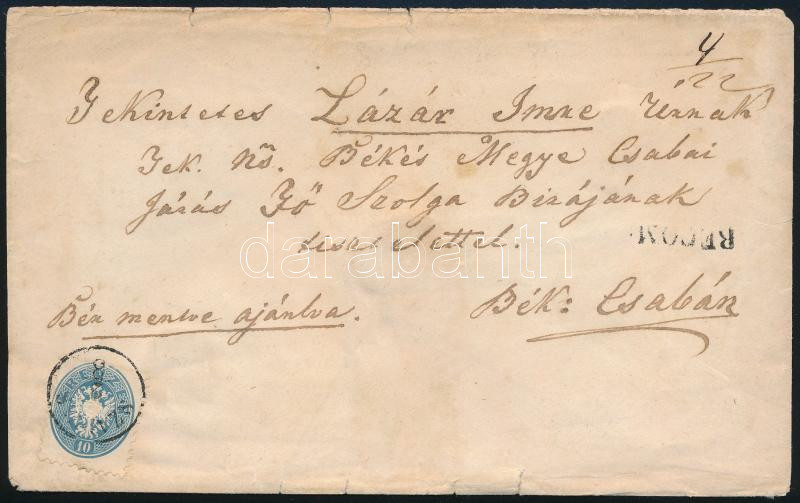 4/22
Tekintetes Lázár Imre Úrnak
Tek. Ns. Békés Megye Csabai
Járás Fő Szolga Birájának
tisztelettel.
RECOM.
Bér mentve ajánlva.
Bék: Csabán
10
darabanth